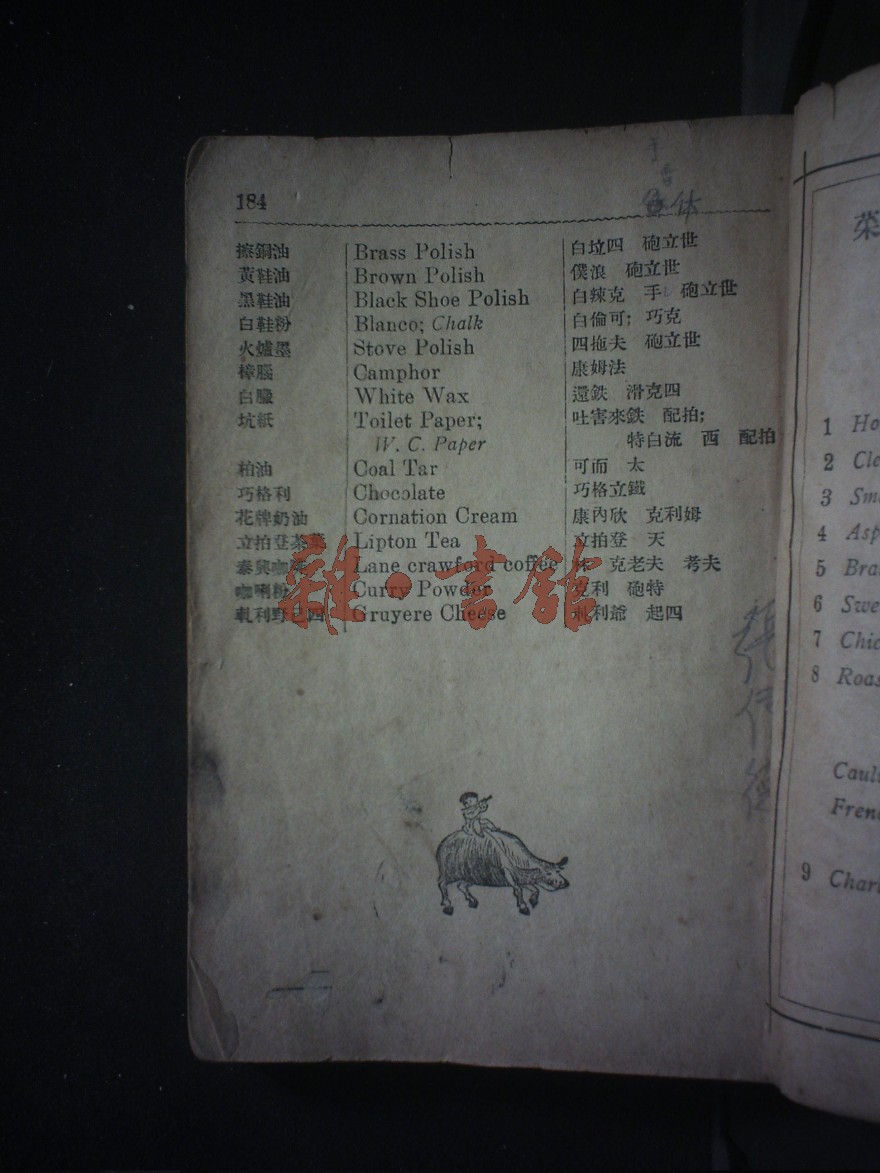 184
擦銅油 Brass Polish 白垃四 砲立世
黃鞋油 Brown Polish 僕浪 砲立世
黑鞋油 Black Shoe Polish 白辣克 手 砲立世
白鞋粉 Blanco; Chalk 白倫可; 巧克
火爐墨 Stove Polish 四拖夫 砲立世
樟腦 Camphor 康姆法
白臘 White Wax 還鉄 滑克四
坑紙 Toilet Paper; 吐害來鉄 配拍;
W. C. Paper 特白流 西 配拍
柏油 Coal Tar 可而 太
巧格利 Chocolate 巧格立鐵
花牌奶油 Cornation Cream 康內欣 克利姆
立拍登茶葉 Lipton Tea 立拍登 天
泰興咖 Lane crawford coffee 克老夫 考夫
咖喇粉 Curry Powder 克利 砲特
利野 四 Gruyere Cheese 利爺 起四
雜·書館
1 Ho
2 Cle
3 Sm
4 Asp
5 Bra
6 Swe
7 Chic
8 Roas
Caul
Fren
9 Charl